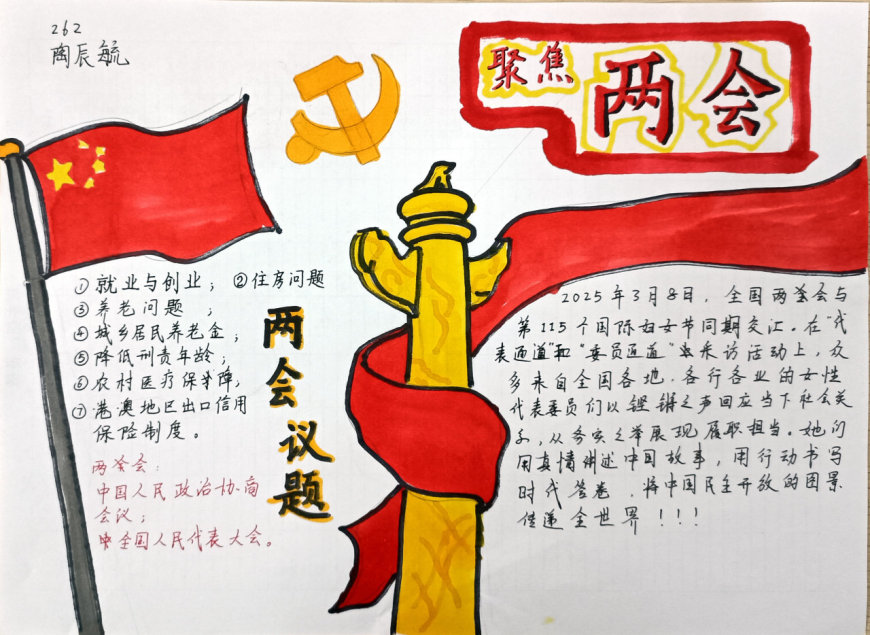 262
陶辰毓
聚焦
两会
①就业与创业；②住房问题
③养老问题；
④城乡居民养老金；
⑤降低刑责年龄；
⑥农村医疗保障；
⑦港澳地区出口信用
保险制度。
两会会：
中国人民政治协商
会议；
全国人民代表大会。
两会议题
2025年3月8日，全国两会会与
第115个国际妇女节同期交汇。在“代
表通道”和“委员通道”采访活动上，众
多来自全国各地、各行各业的女性
代表委员们以铿锵之声回应当下社会关
，从务实之举展现履职担当。她们
用真情讲述中国故事，用行动书写
时代答卷，将中国民主开放的图景
传递全世界！！！